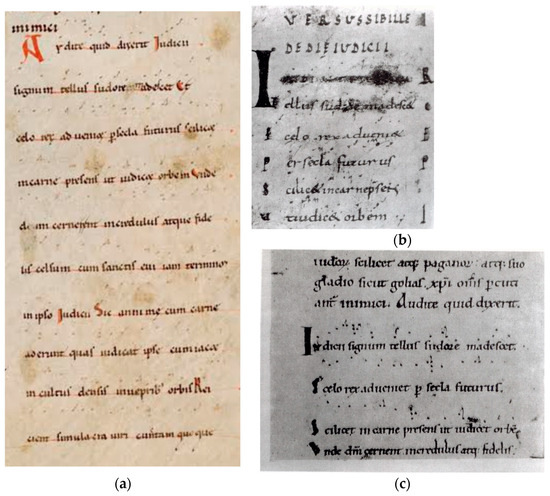 inimici
Audite quid dixerit Iudicii
signum tellus sudore madescet Et
celo rex adveniet p secla futurus scilicet
in carne presens ut iudicet orbem Unde
dm cernerent incredulus atque fide
lis celsum cum sanctis evi iam termino
in ipso Iudicii Sic anime cum carne
aderunt quas iudicat ipse cum iacet
incultus densis in veprib; orbis Rei
cient simulacra viri cunctam que que
(a)
VERSUS SIBILLE
DE DIE IUDICII
I
R
ellus sudore madescet
e
E celo rex adveniet
E
P er secla futurus
P
S cilicet in carne psens
ut iudicet orbem
I
(b)
iudeor scilicet atq; paganor atq; suo
gladio sicut golias xpi oms pcuti
ant inimici. Audite quid dixerit.
Iudicii signum tellus sudore madescet.
E celo rex adveniet p secla futurus.
Scilicet in carne presens ut iudicet orbe
Unde dm cernent incredulus atq; fidelis.
(c)